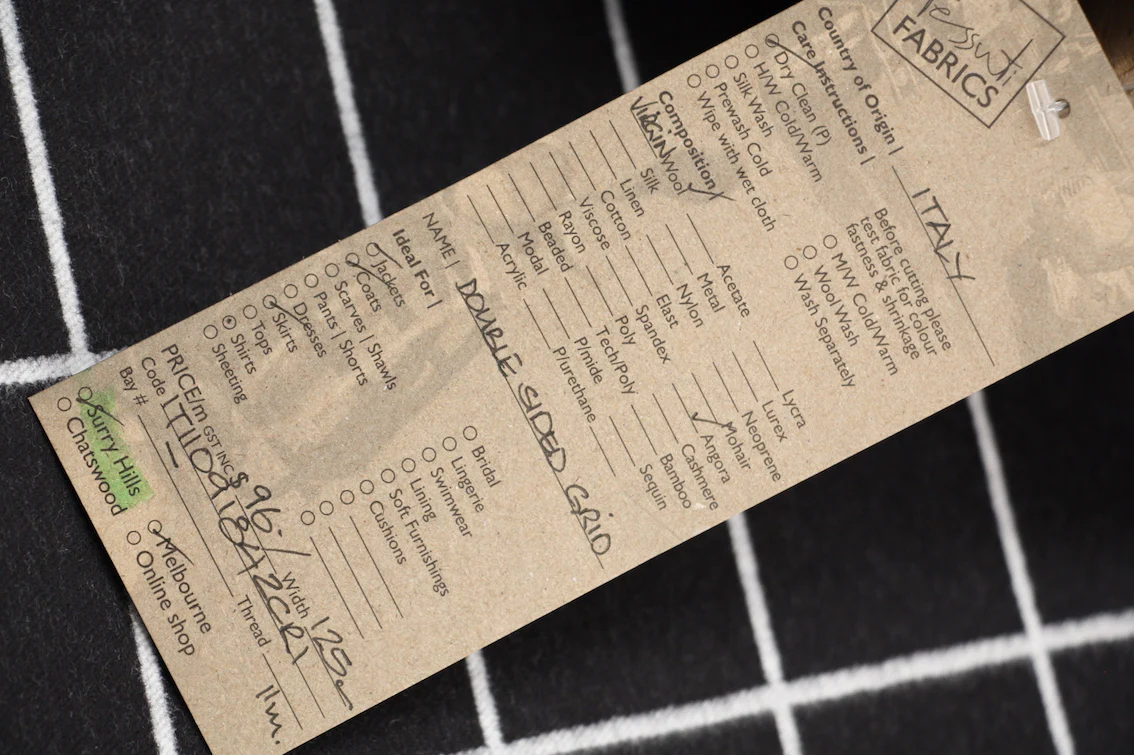 FABRICS
Country of Origin | ITALY
Care Instructions |
Dry Clean (P)
H/W Cold/Warm
Silk Wash
Prewash Cold
Wipe with wet cloth
Before cutting please
test fabric for colour
fastness & shrinkage
M/W Cold/Warm
Wool Wash
Wash Separately
Composition
VIRGIN Wool
Silk
Linen
Cotton
Viscose
Rayon
Beaded
Modal
Acrylic
Acetate
Metal
Nylon
Elast
Spandex
Poly
Tech/Poly
P/mide
P/urethane
Lycra
Lurex
Neoprene
Mohair
Angora
Cashmere
Bamboo
Sequin
NAME | DOUBLE SIDED GRID
Ideal For |
Jackets
Coats
Scarves | Shawls
Pants | Shorts
Dresses
Skirts
Tops
Shirts
Sheeting
Bridal
Lingerie
Swimwear
Lining
Soft Furnishings
Cushions
PRICE/m GST INC $96./ Width 125c
Code
Bay # Thread 11m.
Surry Hills
Chatswood
Melbourne
Online shop